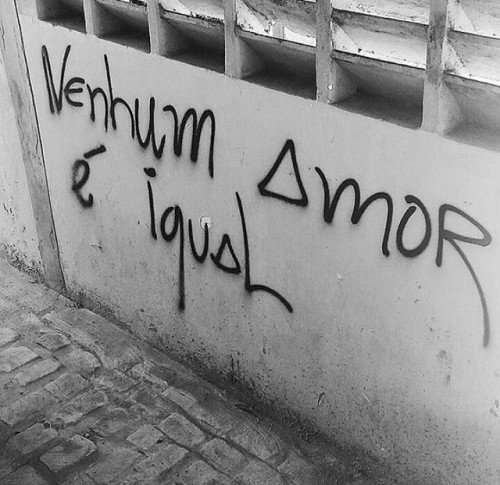 Nenhum AmoR
é iguaL